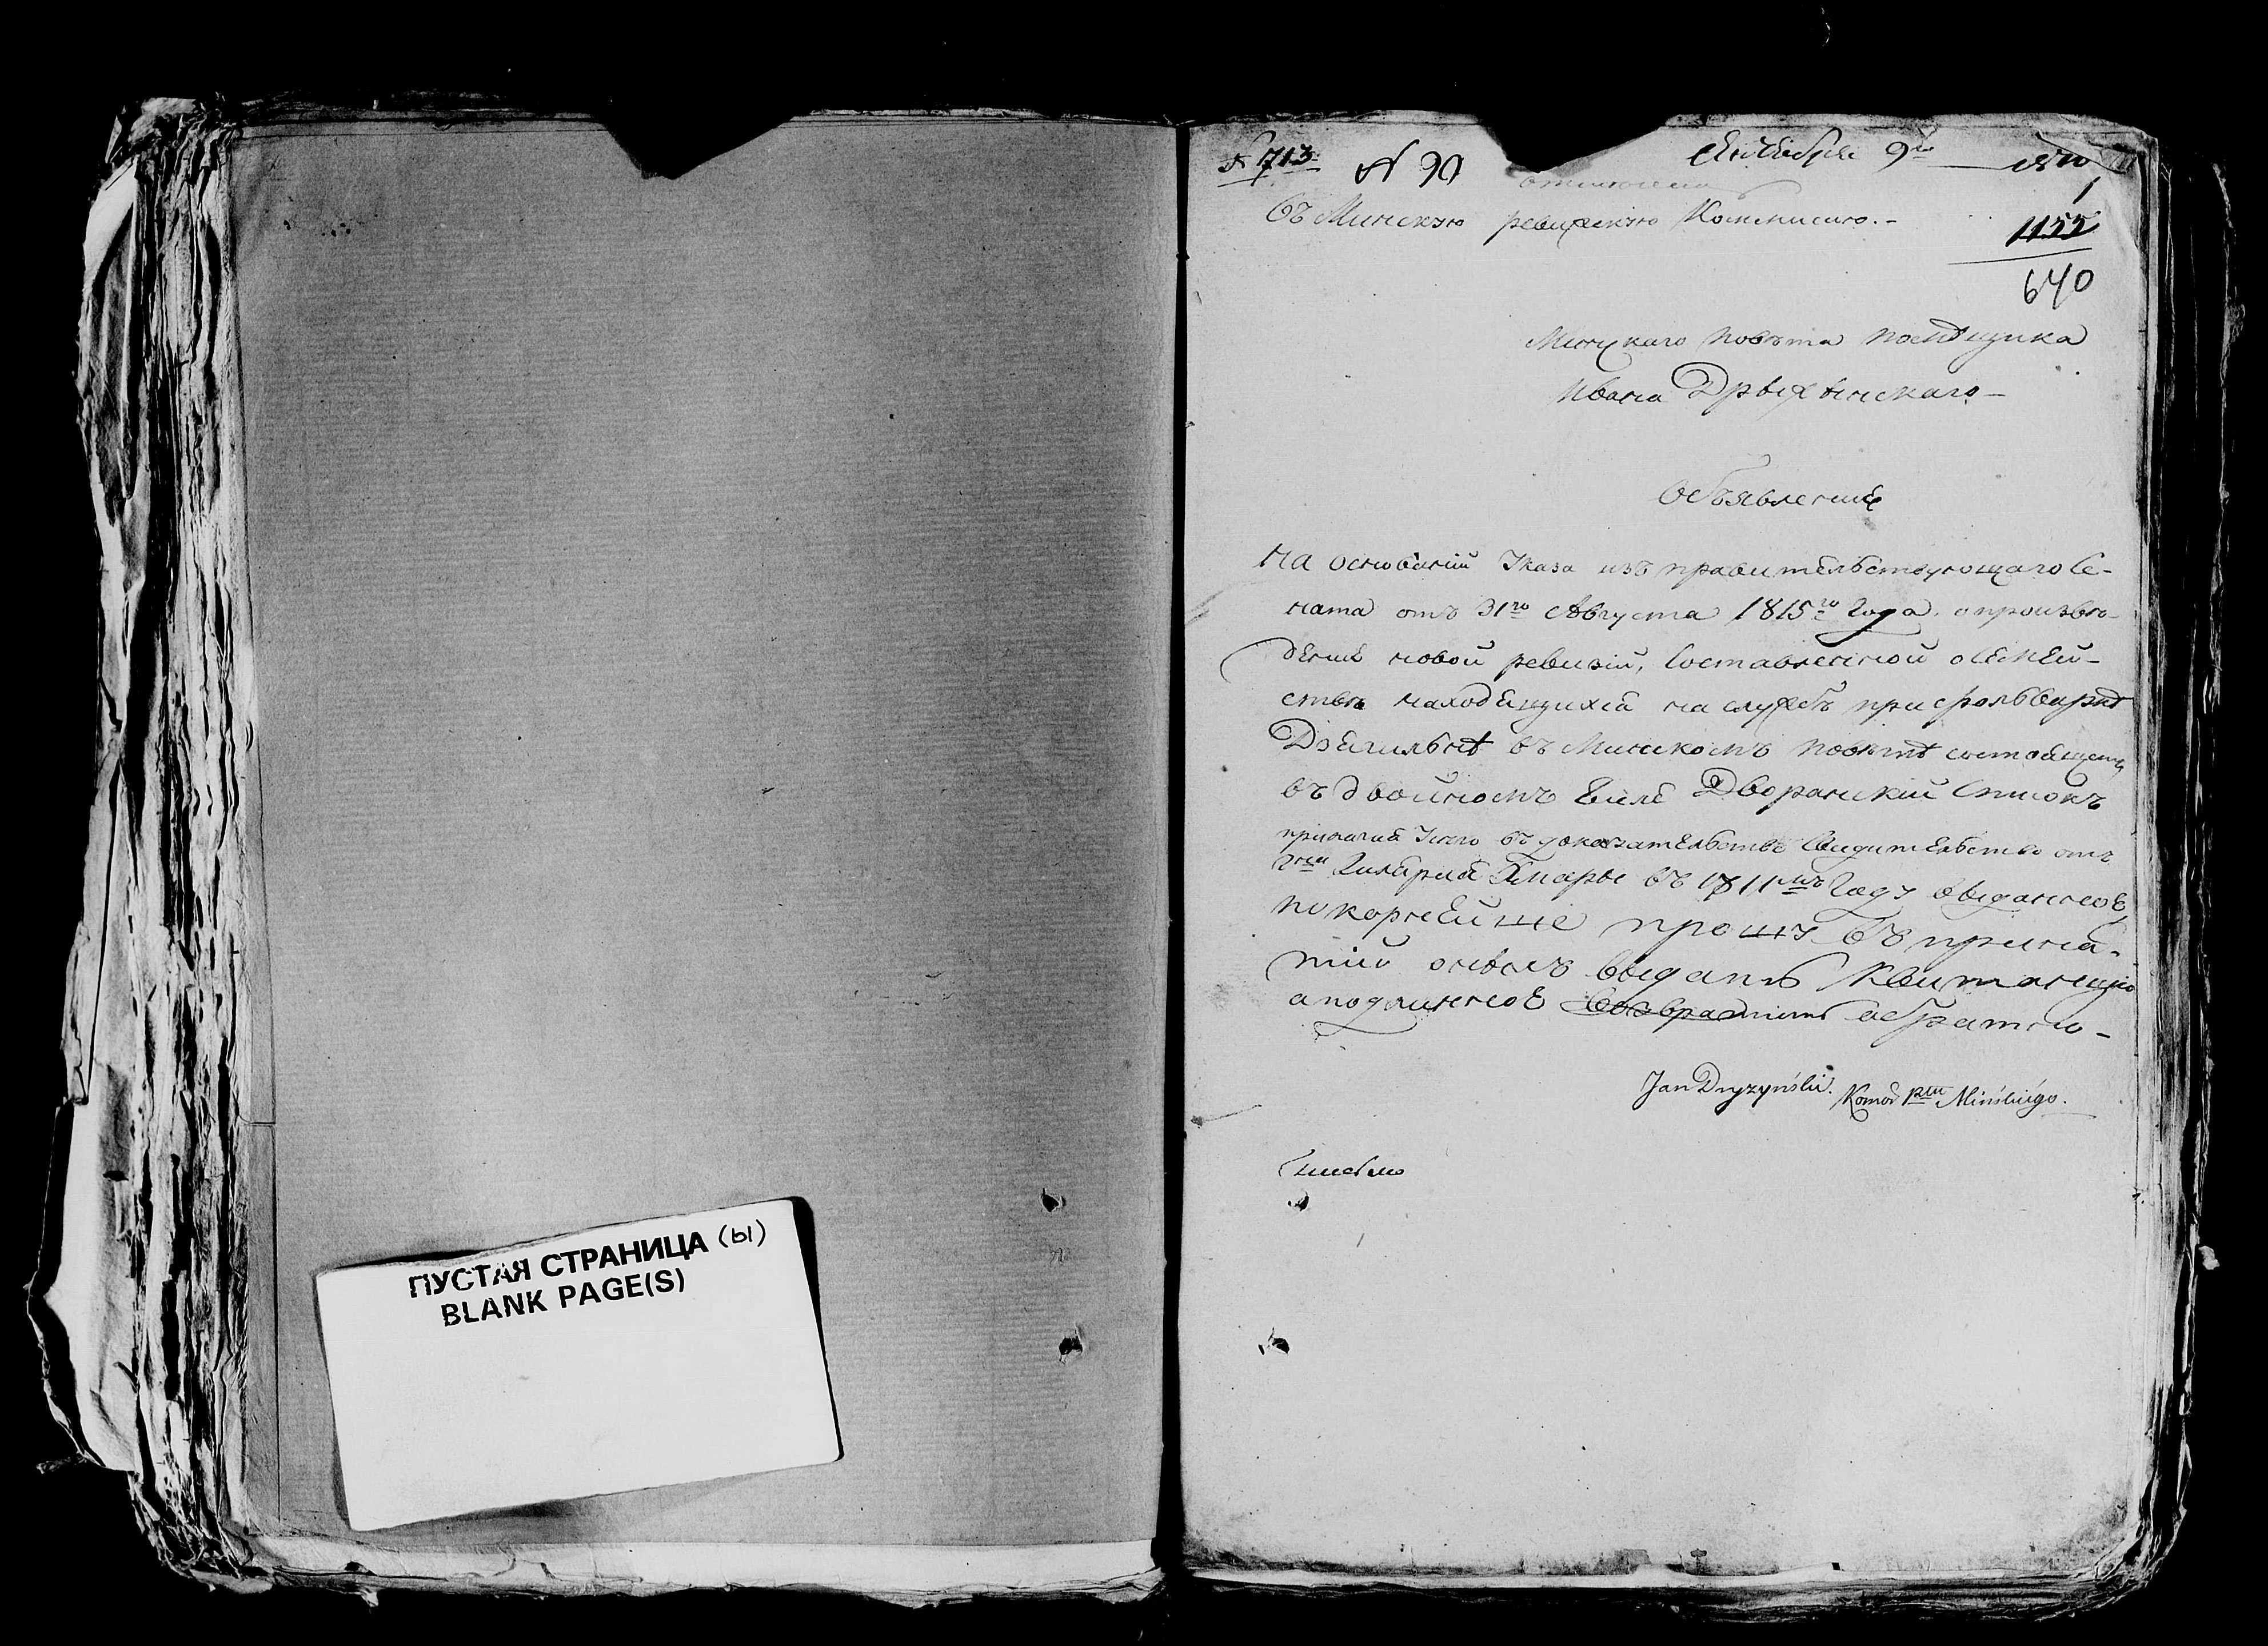 ПУСТАЯ СТРАНИЦА (ы)
BLANK PAGE(S)
№ 713
№ 90
9го
Въ Минскую ревизскую Коммисию.-
1
1155
640
Минскаго повѣта помѣщика
Ивана Дрыжинскаго-
Объявление
На основаніи Указа изъ правительствующаго Се-
ната отъ 31го Августа 1815го Года. о произве-
дение новой ревизіи, Составленной о семей-
ствѣ находящихся на службѣ при фольваркѣ
въ Минскомъ повѣтѣ состоящемъ
въ двойномъ числѣ Дворянский Списокъ
въ доказательство свидительство отъ
въ 1811мъ Году выданное
покорнейше прошу въ приня-
тии оныхъ выдать Квитанцию
а подлинное возвратить обратно-
Jan Dryzyński. Komor Pttu Mińskiego.